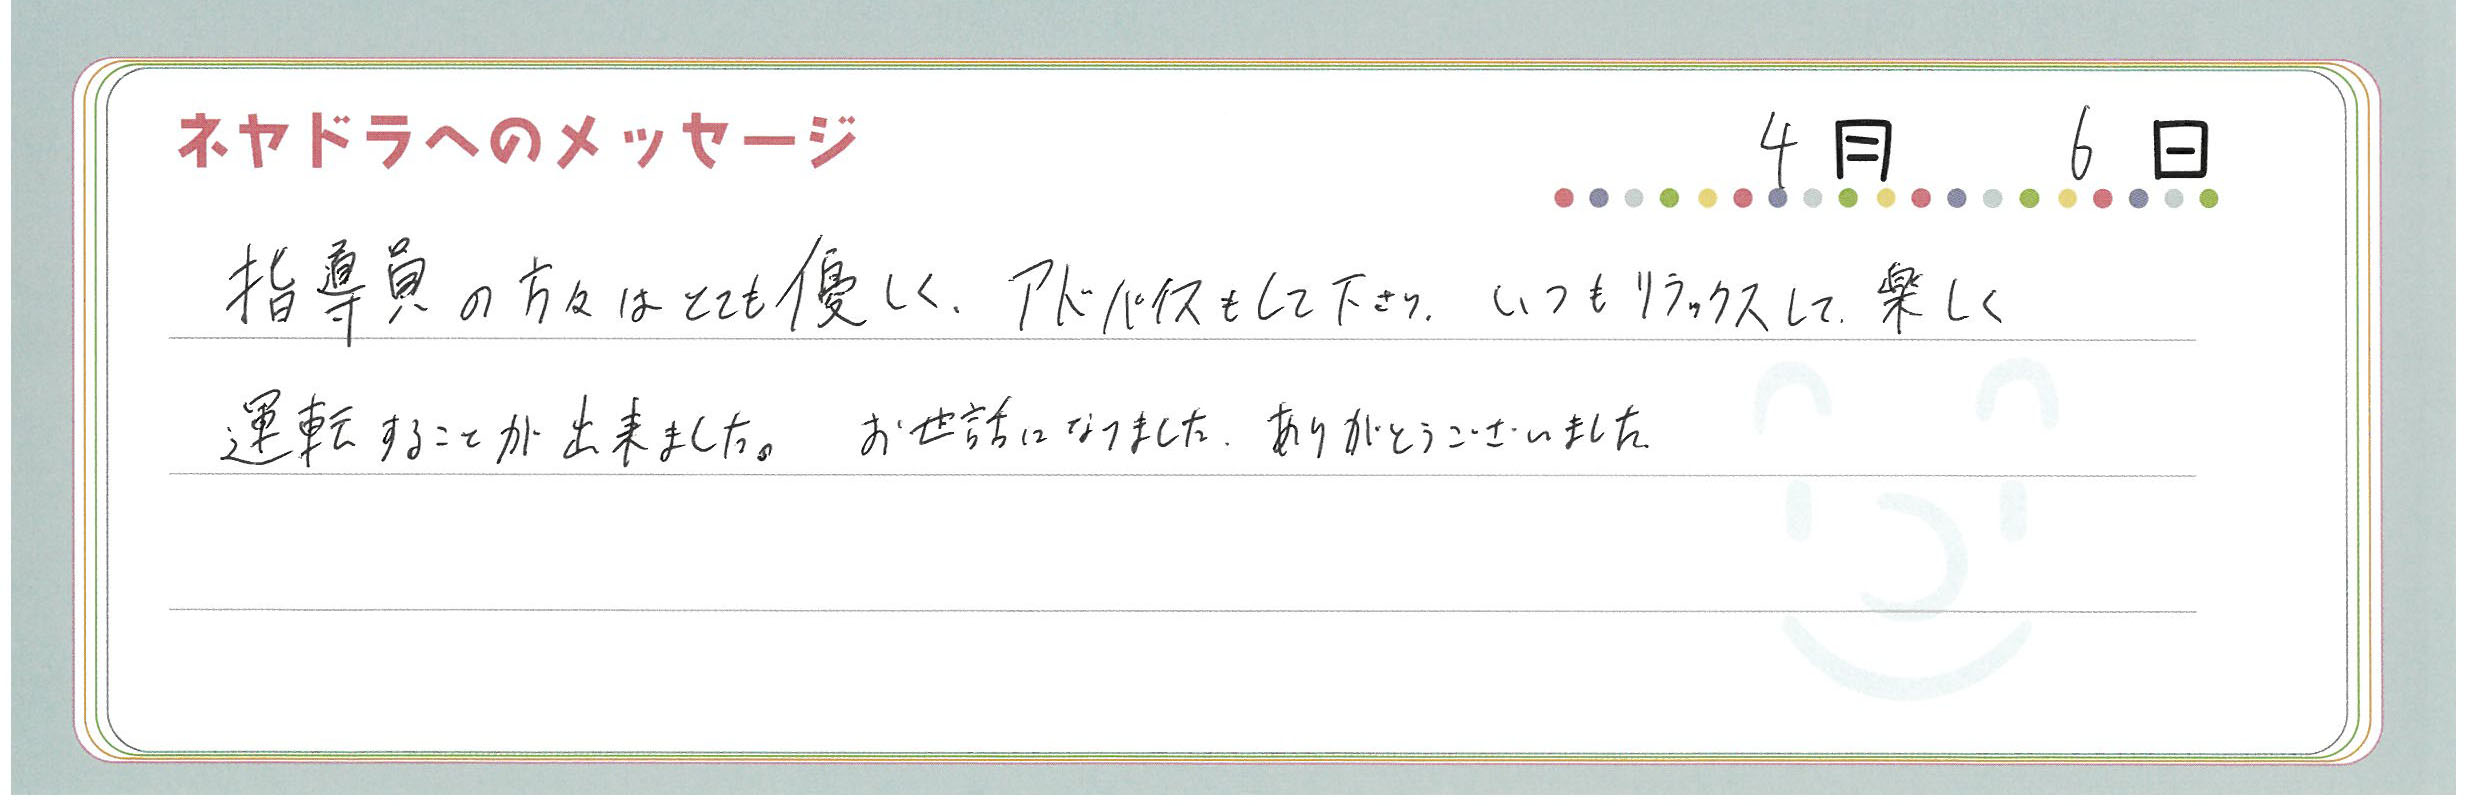 ネヤドラへのメッセージ
4月 6日
指導員の方々はとても優しく、アドバイスもして下さり、いつもリラックスして、楽しく
運転することが出来ました。 お世話になりました。ありがとうございました